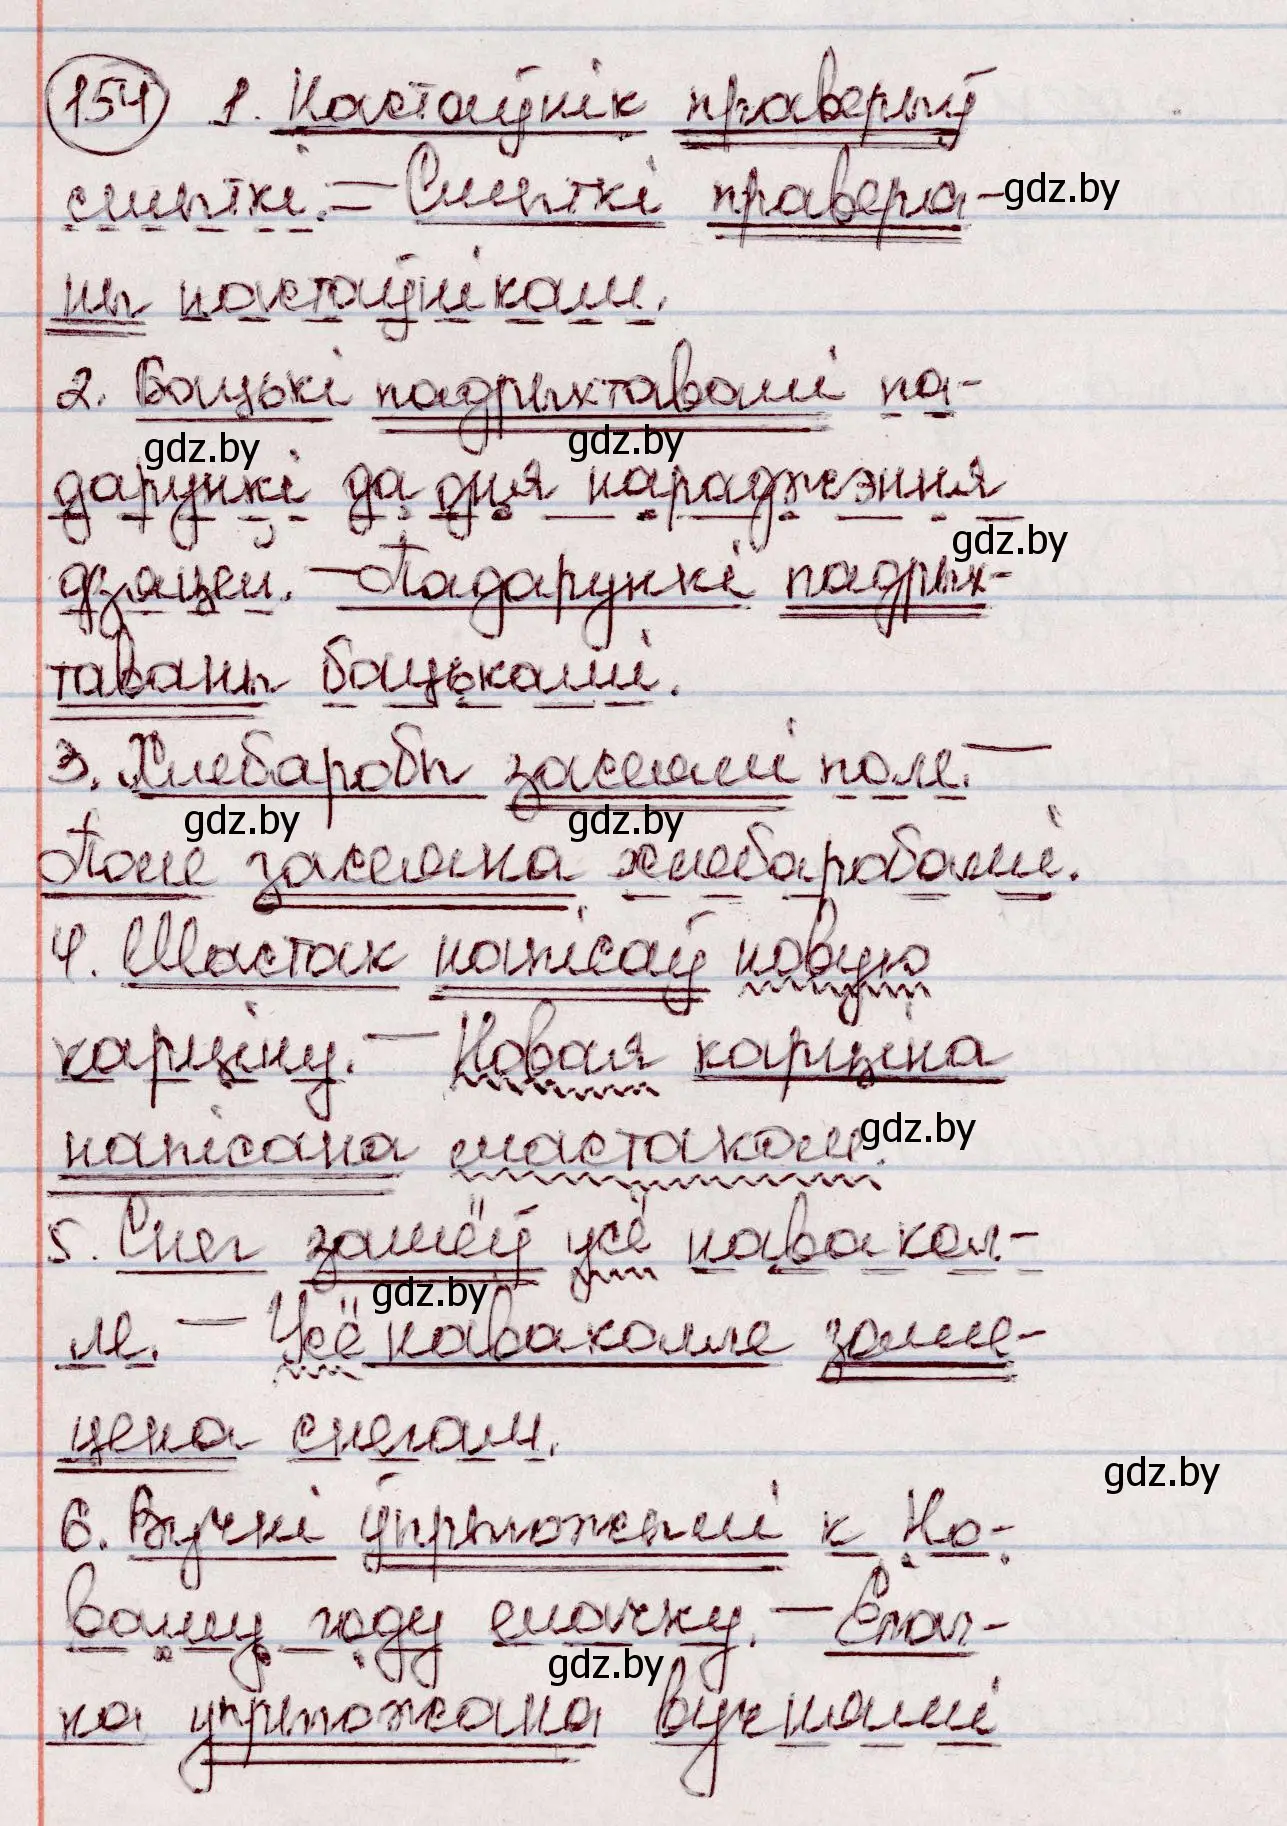 154 1. Настаўнік праверыў
сшыткі. — Сшыткі правера- gdz.by
ны настаўнікам.
2. Бацькі падрыхтавалі па-
gdz.by gdz.by
дарункі да дня нараджэння
gdz.by
дзяцей. — Падарункі падрых-
таваны бацькамі.
3. Хлебаробы засеялі поле. —
gdz.by gdz.by
Поле засеяна хлебаробамі.
4. Мастак напісаў новую
карціну. — Новая карціна
gdz.by
напісана мастаком.
5. Снег замёў усё навакол-
gdz.by
ле. — Усё наваколле заме-
цена снегам.
gdz.by
6. Вучні ўпрыгожылі к Но-
ваму году ёлачку. — Ёлач-
gdz.by
ка упрыгожана вучнямі